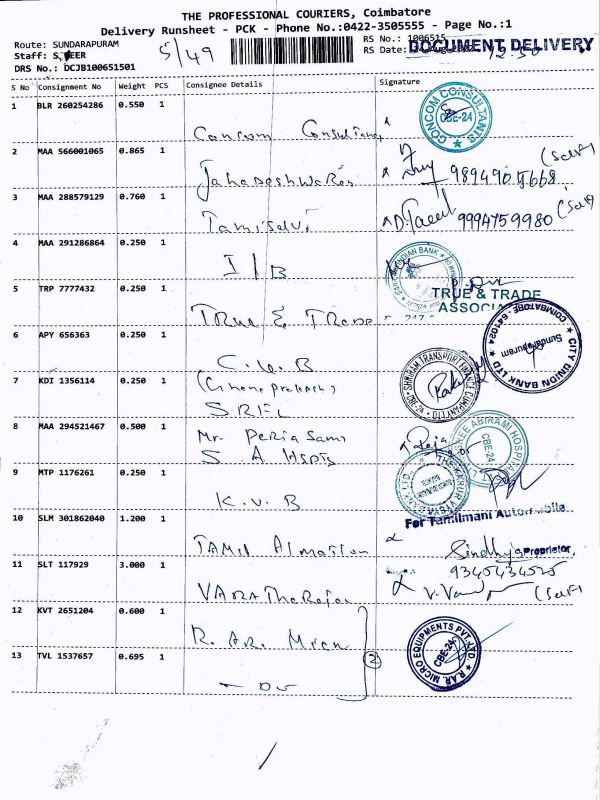 THE PROFESSIONAL COURIERS, Coimbatore
Delivery Runsheet - PCK - Phone No.:0422-3505555 - Page No.:1
Route: SUNDARAPURAM
RS No.: 1006515
Staff:
5/49
RS Date:
DOCUMENT DELIVERY
DRS No.: DCJB100651501
S No Consignment No Weight PCS Consignee Details Signature
1 BLR 260254286 0.550 1
CONCOM CONSULTANTS CBE-24
2 MAA 566001065 0.865 1
(Self)
3 MAA 288579129 0.760 1
Tamilselvi 9994759980 (Self)
4 MAA 291286864 0.250 1
I/B INDIAN BANK
5 TRP 7777432 0.250 1
True & Trade TRUE & TRADE
ASSOCIA
6 APY 656363 0.250 1
C.U.B CITY UNION BANK LTD COIMBATORE - 641024 Sundarapuram
7 KDI 1356114 0.250 1
SHRIRAM TRANSPORT FINANCE COMPANY LTD CBE-24
8 MAA 294521467 0.500 1
Mr. Periasami
ABIRAMI HOSPITAL CBE-24
9 MTP 1176261 0.250 1
K.V.B THE KARUR VYSYA BANK LTD
10 SLM 301862040 1.200 1
For Tamilmani Automobile
Sindhuja Proprietor
11 SLT 117929 3.000 1
9345434525
(Self)
12 KVT 2651204 0.600 1
R. AR. Micro R.AR. MICRO EQUIPMENTS PVT. LTD CBE-24
13 TVL 1537657 0.695 1
2